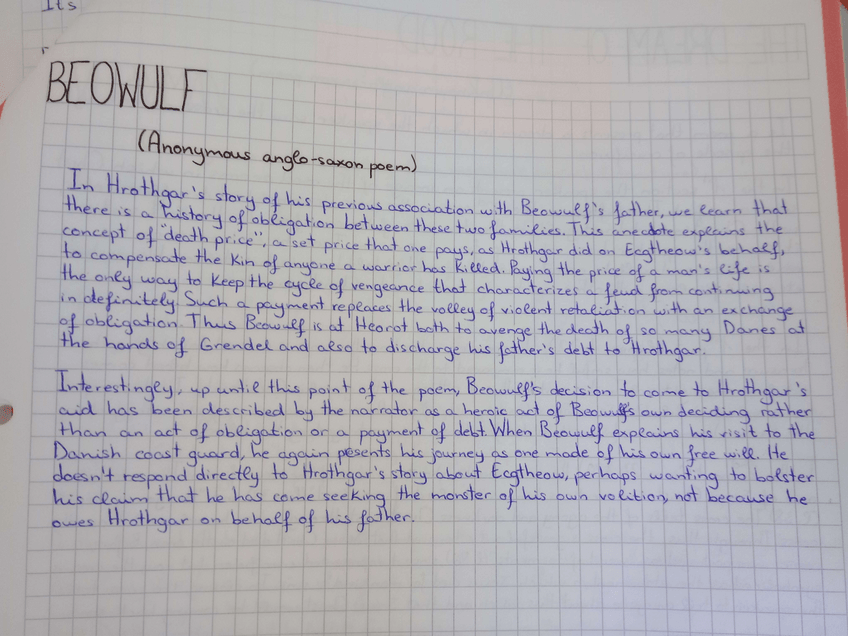 Its
BEOWULF
(Anonymous anglo-saxon poem)
In Hrothgar's story of his previous association with Beowulf's father, we learn that
there is a history of obligation between these two families. This anecdote explains the
concept of "death price", a set price that one pays, as Hrothgar did on Ecgtheow's behalf,
to compensate the kin of anyone a warrior has killed. Paying the price of a man's life is
the only way to keep the cycle of vengeance that characterizes a feud from continuing
in definitely. Such a payment replaces the volley of violent retaliation with an exchange
of obligation. Thus Beowulf is at Heorot both to avenge the death of so many Danes at
the hands of Grendel and also to discharge his father's debt to Hrothgar.
Interestingly, up until this point of the poem, Beowulf's decision to come to Hrothgar's
aid has been described by the narrator as a heroic act of Beowulf's own deciding rather
than an act of obligation or a payment of debt. When Beowulf explains his visit to the
Danish coast guard, he again pesents his journey as one made of his own free will. He
doesn't respond directly to Hrothgar's story about Ecgtheow, perhaps wanting to bolster
his claim that he has come seeking the monster of his own volition, not because he
owes Hrothgar on behalf of his father.